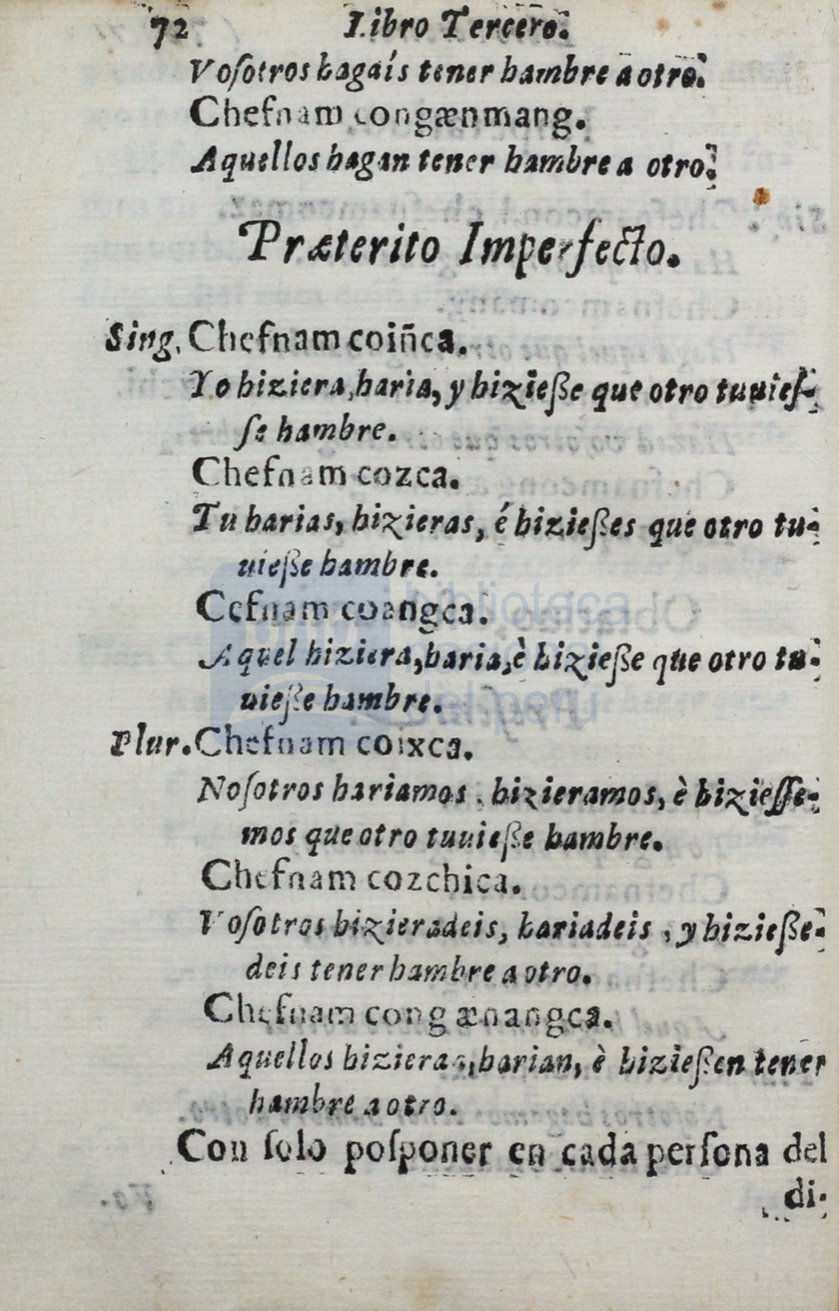 72 Libro Tercero.
Vosotros hagais tener hambre a otro.
Chefnam congænmang.
Aquellos hagan tener hambre a otro.
Præterito Imperfecto.
Sing. Chefnam coiñca.
Yo hiziera, haria, y hizieße que otro tuuies-
se hambre.
Chefnam cozca.
Tu harias, hizieras, é hizießes que otro tu-
uieße hambre.
Cefnam coangca.
Aquel hiziera, haria, è hizieße que otro tu-
uieße hambre.
Plur. Chefnam coixca.
Nosotros hariamos, hizieramos, è hiziesse-
mos que otro tuuieße hambre.
Chefnam cozchica.
Vosotros hizieradeis, hariadeis, y hizieße-
deis tener hambre a otro.
Chefnam congænangca.
Aquellos hizieran, harian, è hizießen tener
hambre a otro.
Con solo posponer en cada persona del
di-
biblioteca
del perú